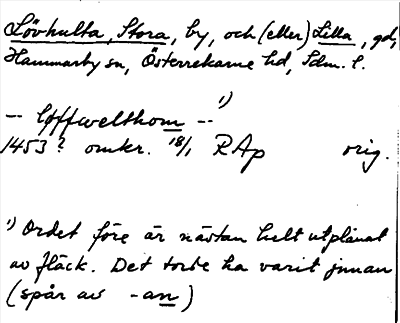 Lövhulta, Stora, by, och (eller) Lilla, gd,
Hammarby sn, Österrekarne hd, Sdm. l.
-- løffwelthom -- 1)
1453? omkr. 18/1 RAp orig.
1) Ordet före är nästan helt utplånat
av fläck. Det torde ha varit innan
(spår av -an)